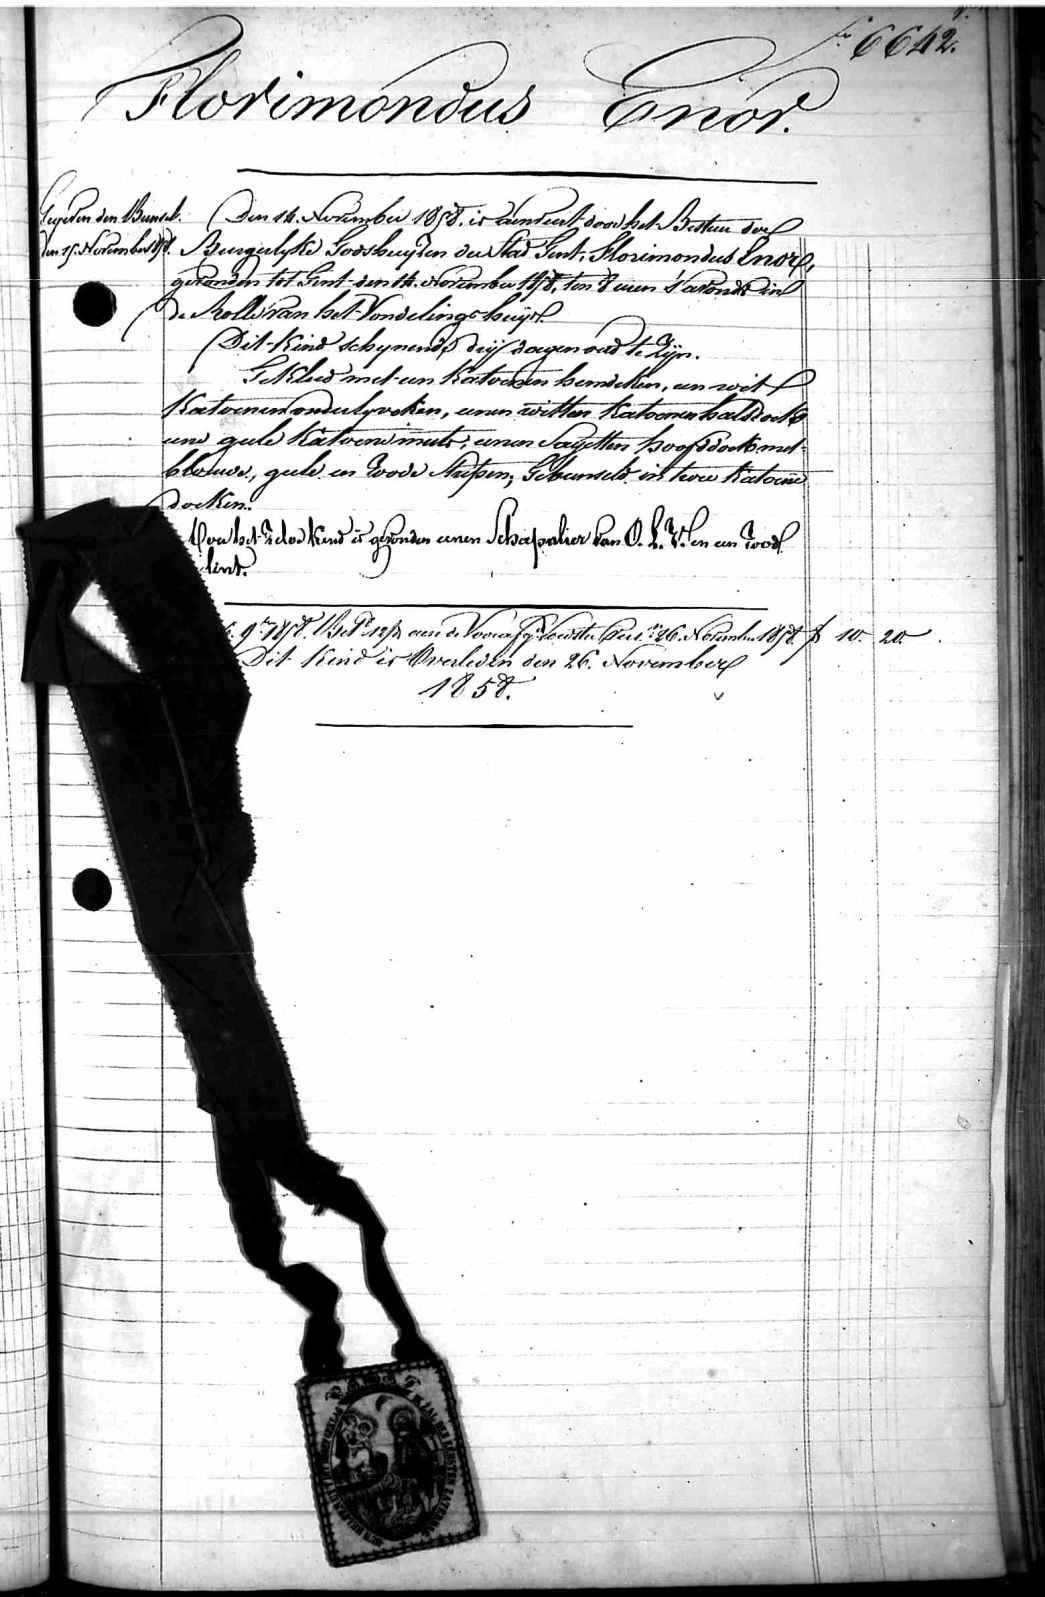 6642.
Florimondus Enor.
Gegeven den Bunsel.
den 15. November 1858.
Den 14. November 1858. is aenveert door het Bestuer der
Burgerlyke Godshuyzen der Stad Gent, Florimondus Enor,
gevonden tot Gent den 14. November 1858, ten 8 uren s'avonds in
de Rolle van het Vondelingshuys.
Dit Kind schynende dry dagen oud te zyn.
Gekleed met een Katoenen hemdeken, een wit
Katoenen onderlyveken, eenen witten Katoenen halsdoek
eene geele Katoene muts, eenen Sayetten hoofddoek met
blauwe, geele en roode Strepen; Gebunseld in twee Katoene
doeken.
het kind is gevonden eenen Schapulier van O. L. V. en een rood
lint.
9r 1858. den 26. November 1858. f 10. 20.
Dit Kind is Overleden den 26. November
1858.